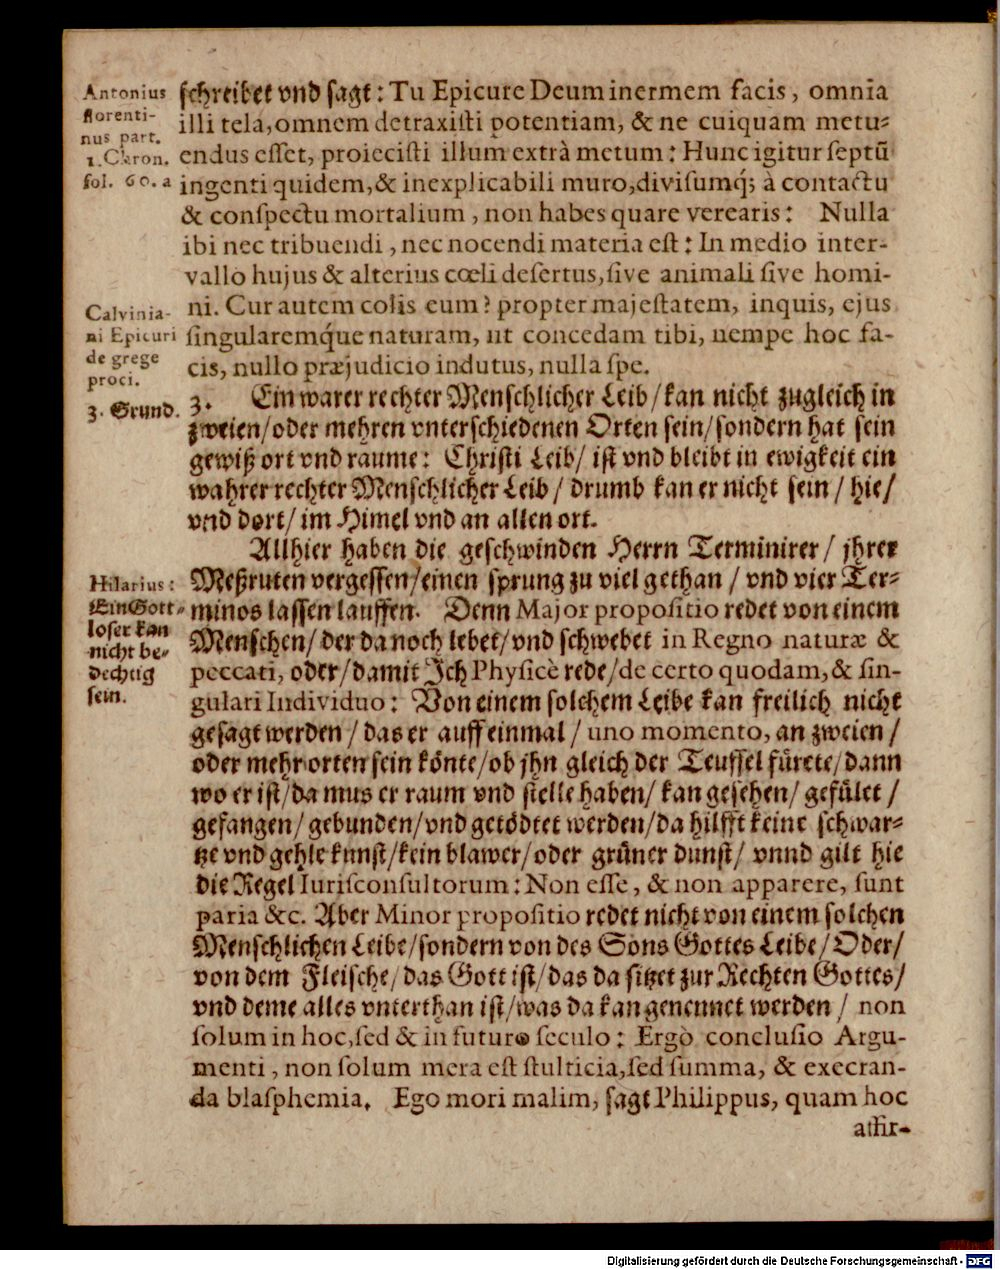 Antonius
florenti-
nus part.
1. Chron.
fol. 60. a
schreibet vnd sagt: Tu Epicure Deum inermem facis, omnia
illi tela, omnem detraxisti potentiam, & ne cuiquam metu-
endus esset, proiecisti illum extrà metum: Hunc igitur septũ
ingenti quidem, & inexplicabili muro, divisumq́; à contactu
& conspectu mortalium, non habes quare verearis: Nulla
ibi nec tribuendi, nec nocendi materia est: In medio inter-
vallo hujus & alterius cœli desertus, sive animali sive homi-
ni. Cur autem colis eum? propter majestatem, inquis, ejus
singularemq́ue naturam, ut concedam tibi, nempe hoc fa-
cis, nullo præjudicio indutus, nulla spe.
Calvinia-
ni Epicuri
de grege
proci.
3. Grund.
3. Ein warer rechter Menschlicher Leib/ kan nicht zugleich in
zweien/ oder mehren vnterschiedenen Orten sein/ sondern hat sein
gewiß ort vnd raume: Christi Leib/ ist vnd bleibt in ewigkeit ein
wahrer rechter Menschlicher Leib/ drumb kan er nicht sein/ hie/
vnd dort/ im Himel vnd an allen ort.
Allhier haben die geschwinden Herrn Terminirer/ jhrer
Meßruten vergessen/ einen sprung zu viel gethan/ vnd vier Ter-
minos lassen lauffen. Denn Major propositio redet von einem
Menschen/ der da noch lebet/ vnd schwebet in Regno naturæ &
peccati, oder/ damit Ich Physicè rede/ de certo quodam, & sin-
gulari Individuo: Von einem solchem Leibe kan freilich nicht
gesagt werden/ das er auff einmal/ uno momento, an zweien/
oder mehr orten sein könte/ ob jhn gleich der Teuffel fürete/ dann
wo er ist/ da mus er raum vnd stelle haben/ kan gesehen/ gefület/
gefangen/ gebunden/ vnd getödtet werden/ da hilfft keine schwar-
tze vnd gehle kunst/ kein blawer/ oder grüner dunst/ vnnd gilt hie
die Regel Iurisconsultorum: Non esse, & non apparere, sunt
paria &c. Aber Minor propositio redet nicht von einem solchen
Menschlichen Leibe/ sondern von des Sons Gottes Leibe/ Oder/
von dem Fleische/ das Gott ist/ das da sitzet zur Rechten Gottes/
vnd deme alles vnterthan ist/ was da kan genennet werden/ non
solum in hoc, sed & in futuro seculo: Ergò conclusio Argu-
menti, non solum mera est stulticia, sed summa, & execran-
da blasphemia. Ego mori malim, sagt Philippus, quam hoc
affir-
Hilarius:
Ein Gott-
loser kan
nicht be-
dechtig
sein.
Digitalisierung gefördert durch die Deutsche Forschungsgemeinschaft - DFG